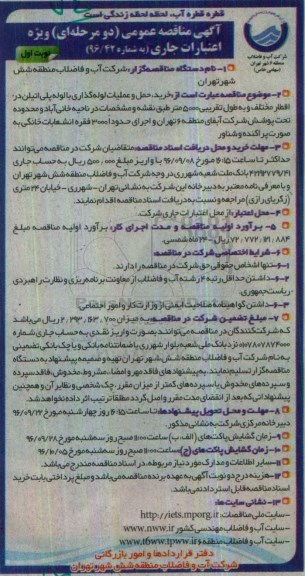 قطره قطره آب، لحظه لحظه زندگی است
آگهی مناقصه عمومی (دو مرحله‌ای) ویژه
اعتبارات جاری (به شماره ۹۶/۴۲)
نوبت اول
شرکت آب و فاضلاب
منطقه ۶ شهر تهران
(سهامی خاص)
۱- نام دستگاه مناقصه‌گزار: شرکت آب و فاضلاب منطقه شش
شهر تهران
۲- موضوع مناقصه عبارت است از: خرید، حمل و عملیات لوله‌گذاری با لوله پلی‌اتیلن در
اقطار مختلف و به طول تقریبی ۵۰۰۰ متر طبق نقشه و مشخصات در ناحیه خانی‌آباد و محدوده
تحت پوشش شرکت آبفای منطقه ۶ تهران و اجرای حدودا ۳۰۰۰ فقره انشعابات خانگی به
صورت پراکنده و شناور
۳- مهلت خرید و محل دریافت اسناد مناقصه: متقاضیان شرکت در مناقصه می‌توانند
حداکثر تا ساعت ۱۶:۱۵ مورخ ۹۶/۰۹/۰۸ با واریز مبلغ ۵۰۰,۰۰۰ ریال به حساب جاری
بانک ملت شعبه شهرری در وجه شرکت آب و فاضلاب منطقه شش شهر تهران
و با معرفی نامه معتبر به دبیرخانه این شرکت به نشانی تهران - شهرری - خیابان ۲۴ متری
(زکریای رازی) مراجعه و نسبت به دریافت اسناد مناقصه اقدام نمایند.
۴- محل اعتبار: از محل اعتبارات جاری شرکت.
۵- برآورد اولیه مناقصه و مدت اجرای کار: برآورد اولیه مناقصه مبلغ
ریال - ۲۴ ماه شمسی.
۶- شرایط اختصاصی شرکت در مناقصه:
۶-۱- تنها اشخاص حقوقی حق شرکت در مناقصه را دارند.
۶-۲- داشتن حداقل رتبه ۴ رشته آب و فاضلاب از معاونت برنامه‌ریزی و نظارت راهبردی
ریاست جمهوری.
۶-۳- داشتن گواهینامه صلاحیت ایمنی از وزارت کار و امور اجتماعی
۷- مبلغ تضمین شرکت در مناقصه: به میزان ریال می‌باشد
که شرکت‌کنندگان در مناقصه می‌توانند بصورت واریز نقدی به حساب جاری شماره
نزد بانک ملی شعبه بلوار شهرری یا ضمانتنامه بانکی و یا چک بانکی تضمینی
به نام شرکت آب و فاضلاب منطقه شش شهر تهران تهیه و ضمیمه پیشنهاد به دستگاه
مناقصه‌گزار تسلیم نمایند. به پیشنهادهای فاقد مهر و امضاء، مشروط، مخدوش، فاقد سپرده
و سپرده‌های مخدوش یا سپرده‌های کمتر از میزان مقرر، چک شخصی و نظایر آن و همچنین
پیشنهاداتی که بعد از انقضای مدت مقرر واصل گردد مطلقا ترتیب اثر داده نخواهد شد.
۸- مهلت و محل تحویل پیشنهادها: تا ساعت ۱۶:۱۵ روز چهارشنبه مورخ ۹۶/۰۹/۲۲
دبیرخانه مرکزی شرکت به نشانی مذکور.
۹- زمان گشایش پاکت‌های (الف، ب): ساعت ۱۱:۰۰ صبح روز سه‌شنبه مورخ ۹۶/۰۹/۲۸
۱۰- زمان گشایش پاکت‌های (ج): ساعت ۱۱:۰۰ صبح روز سه‌شنبه مورخ ۹۶/۱۰/۰۵
۱۱- سایر اطلاعات و مدارک مورد نیاز مربوطه، در اسناد مناقصه مندرج می‌باشد.
۱۲- هزینه درج دو نوبت آگهی به عهده برنده مناقصه می‌باشد و مبلغ پرداختی بابت خرید
اسناد مناقصه قابل استرداد نمی‌باشد.
۱۳- نشانی سایت ها:
- سایت ملی مناقصات: http://iets.mporg.ir
- سایت آب و فاضلاب مهندسی کشور: www.nww.ir
- سایت آب و فاضلاب منطقه ۶: www.t6ww.tpww.ir
دفتر قراردادها و امور بازرگانی
شرکت آب و فاضلاب منطقه شش شهر تهران